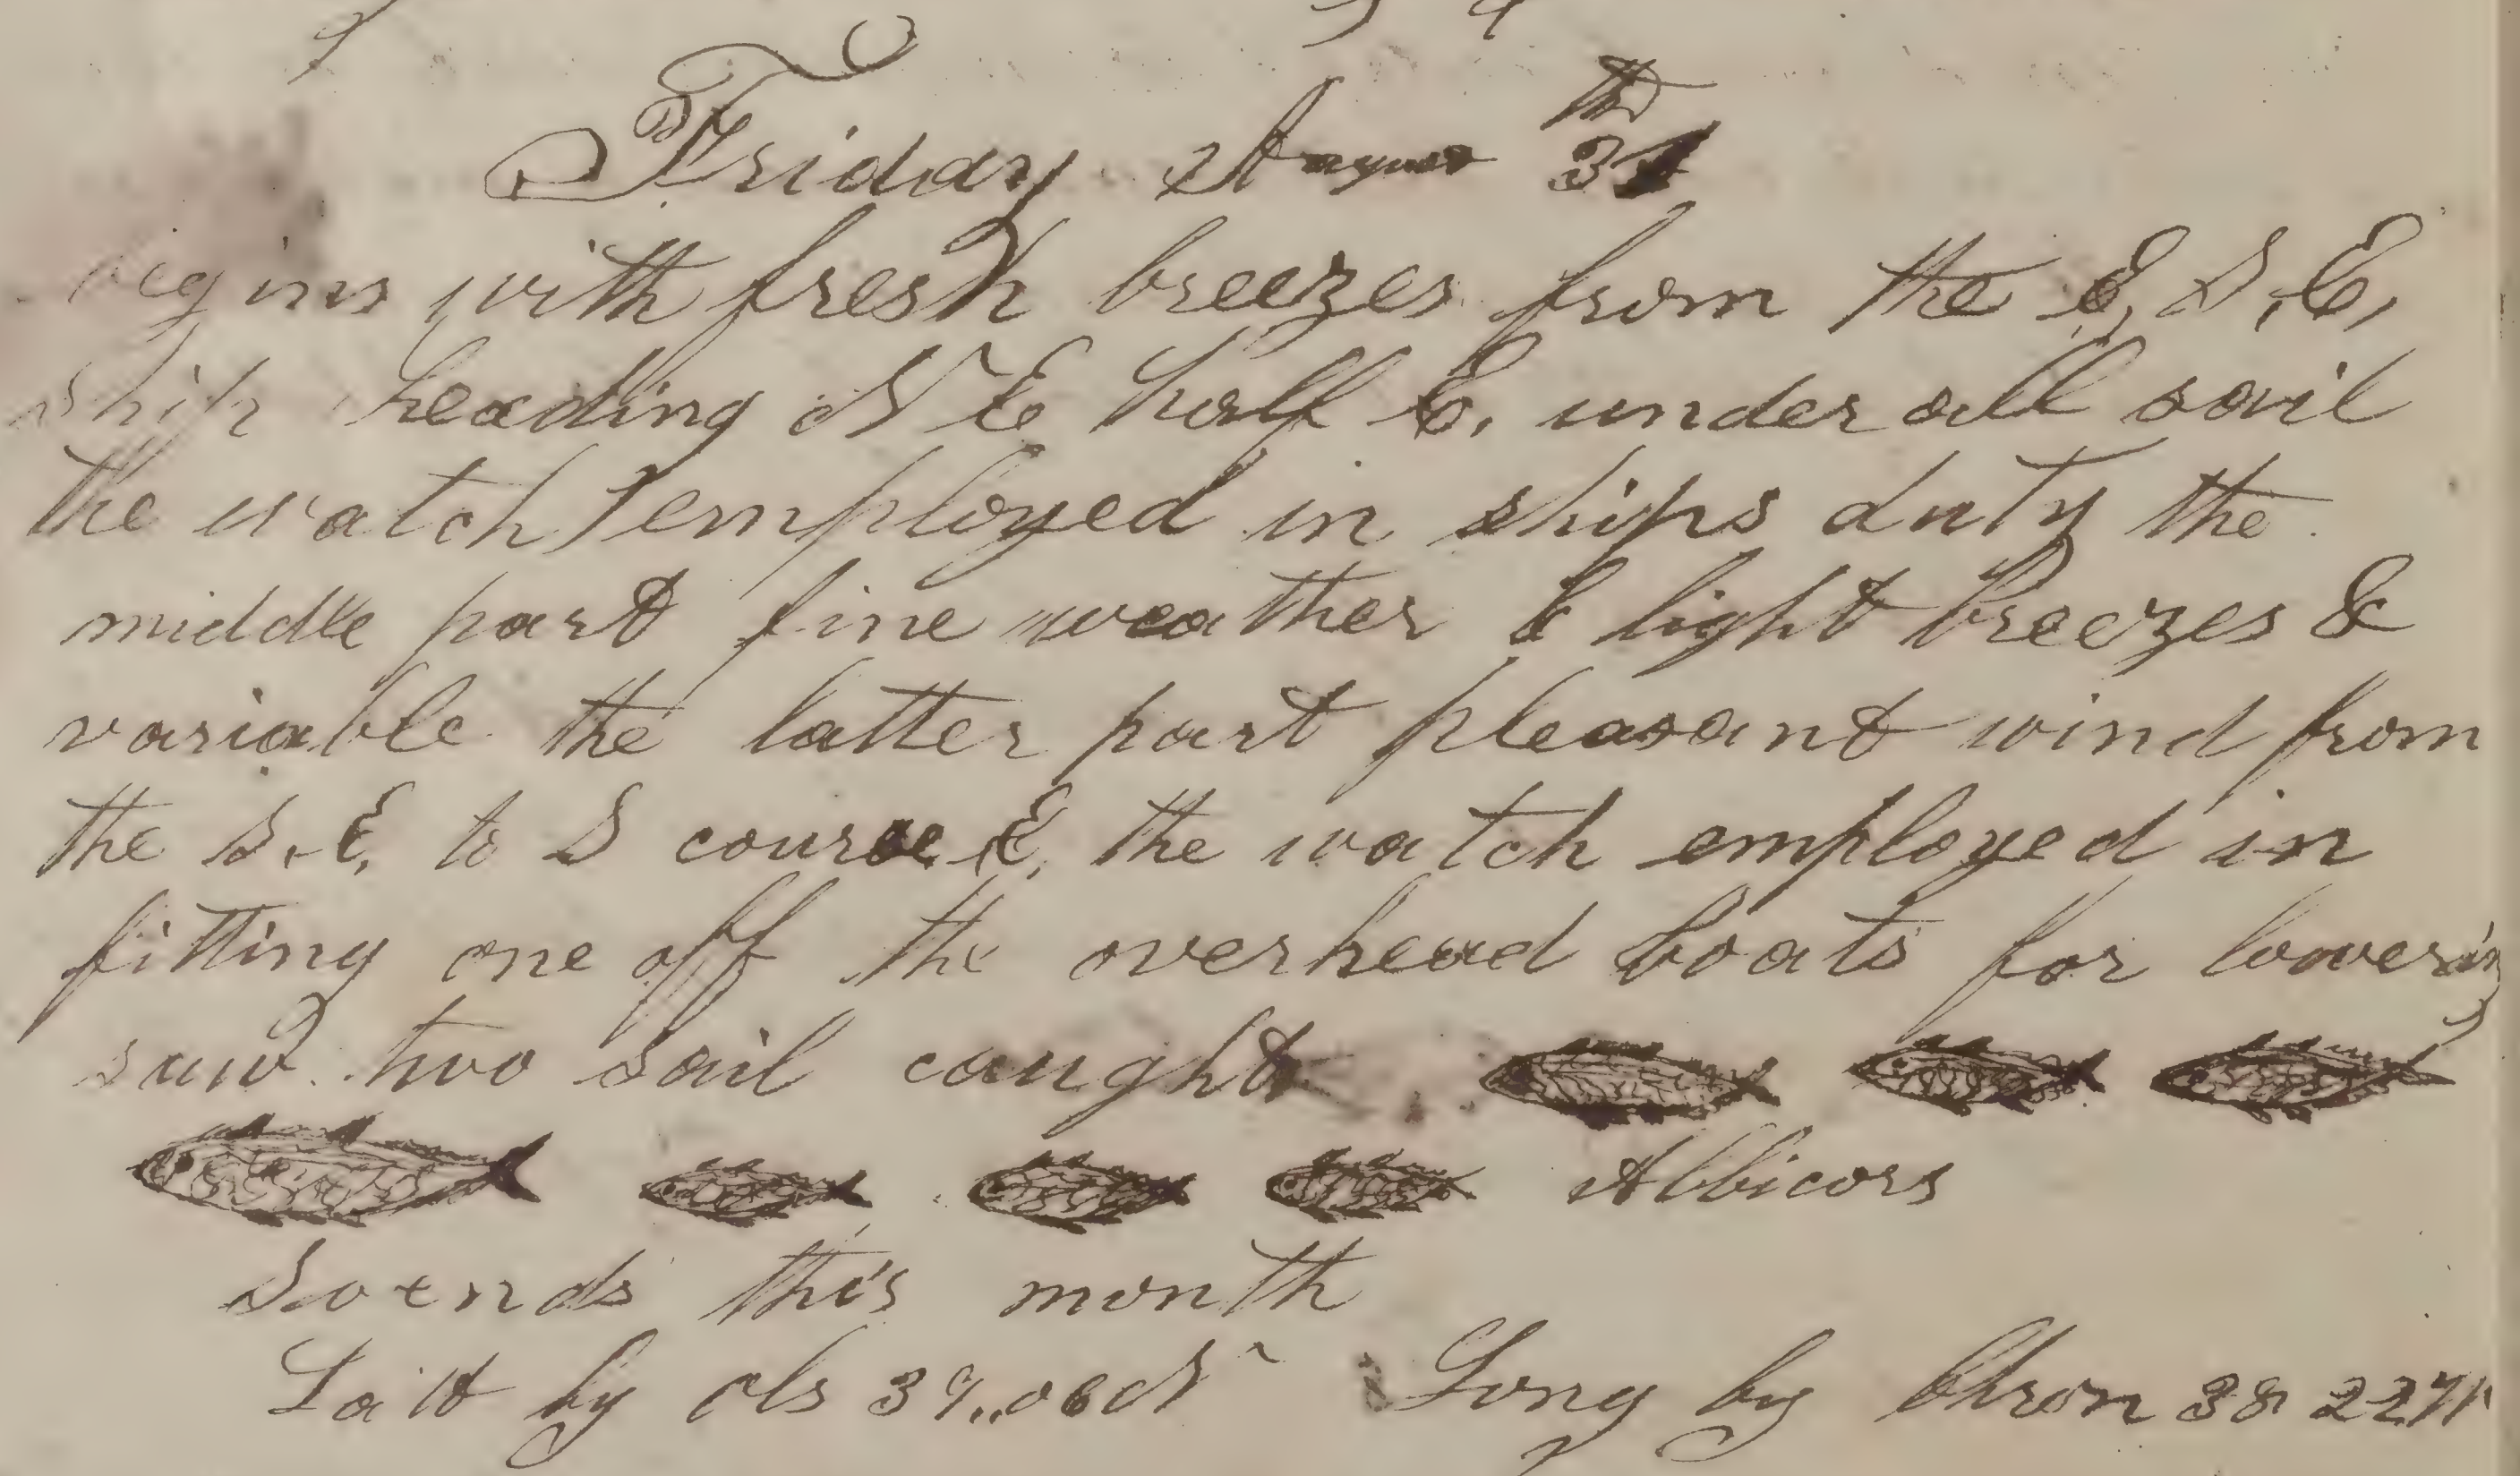 Friday August 31th
Begins with fresh breezes from the E, S, E,
ship heading N E half E, under all sail
the watch employed in ships duty the
middle part fine weather & light breezes &
variable the latter part pleasant wind from
the S. E. to S course E, the watch employed in
fitting one off the overhead boats for lowering
saw two sail caught
Albicors
So ends this month
Latt by obs 39,,06 N Long by Chron 38